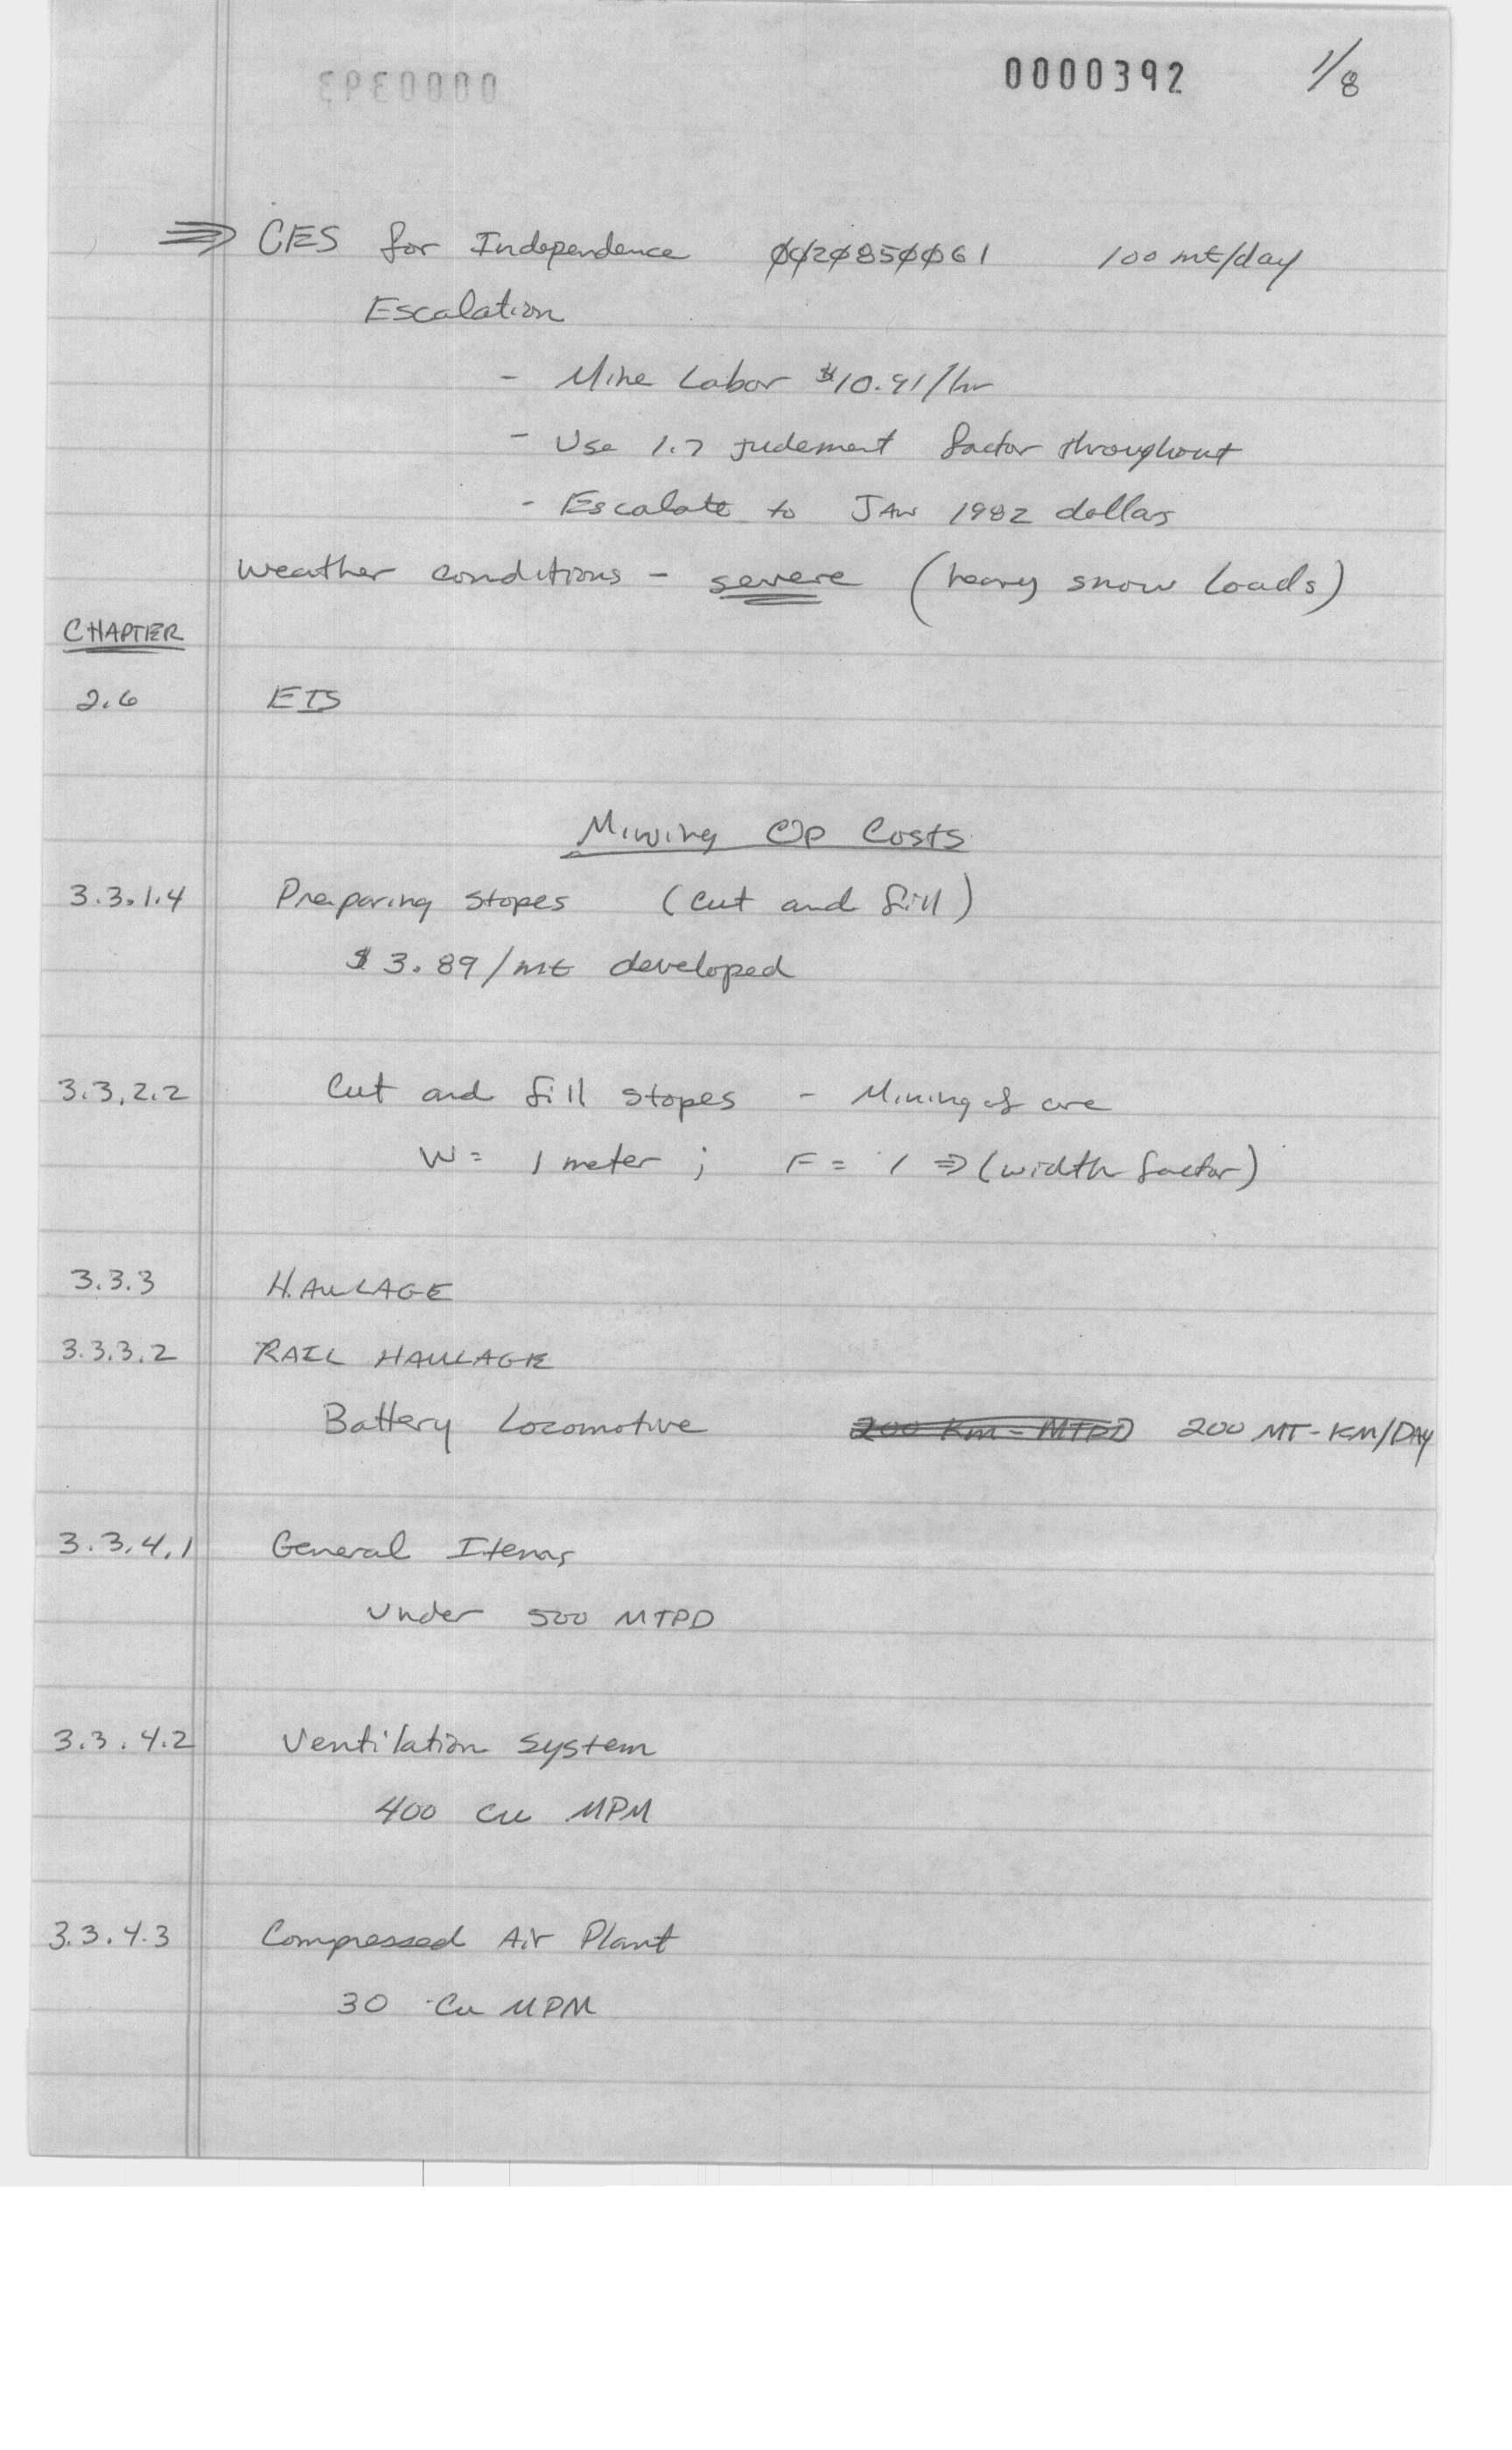 0000393
0000392 1/8
⇒ CES for Independence 0020850061 100 mt/day
Escalation
- Mine Labor $10.91/hr
- Use 1.7 judement factor throughout
- Escalate to JAN 1982 dollars
Weather conditions - severe (heavy snow loads)
CHAPTER
2.6 EIS
Mining Op Costs
3.3.1.4 Preparing stopes (cut and fill)
$3.89/mt developed
3.3.2.2 Cut and fill stopes - Mining of ore
W = 1 meter ; F = 1 ⇒ (width factor)
3.3.3 HAULAGE
3.3.3.2 RAIL HAULAGE
Battery Locomotive 200 Km-MTPD 200 MT-KM/DAY
3.3.4.1 General Items
Under 500 MTPD
3.3.4.2 Ventilation System
400 Cu MPM
3.3.4.3 Compressed Air Plant
30 Cu MPM